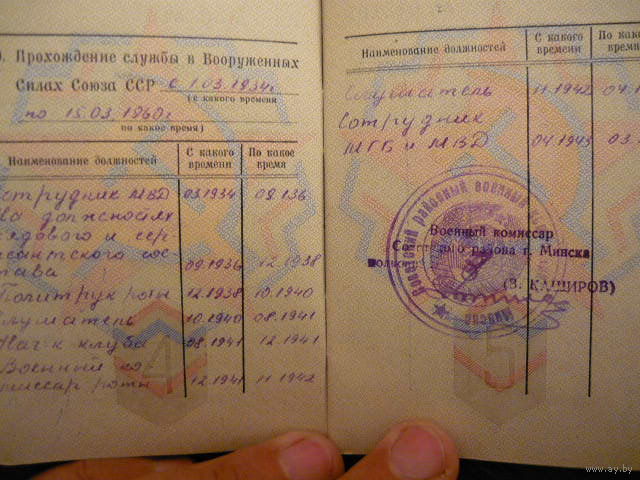 Прохождение службы в Вооруженных
Силах Союза ССР с 1.03.1934г
(с какого времени
по 15.03.1960г
по какое время)
Наименование должностей С какого времени По какое время
Сотрудник МВД 03.1934 09.136
На должностях
рядового и сер-
жантского сос-
тава 09.1936 12.1938
Политрук роты 12.1938 10.1940
Слушатель 10.1940 08.1941
Нач-к клуба 08.1941 12.1941
Военный ко
миссар роты 12.1941 11.1942
4
Наименование должностей С какого времени По какое времени
Слушатель 11.1942 04.1
Сотрудник
МГБ и МВД 04.1943 03.
Военный комиссар
Советского района г. Минска
полковник
(В. КАШИРОВ)
районный военный
5
www.ay.by